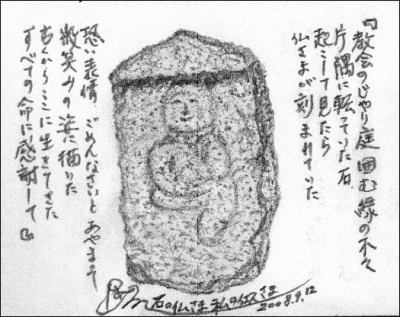 『教会のじゃり庭囲む緑の木々
片隅に転っていた石
起こして見たら
仏さまが刻まれていた
恐い表情 ごめんなさいとあやまり
微笑みの姿に描いた
むくから ここに生きてきた
すべての命に感謝して』
石の仏さま 私のイエスさま
2008.9.12